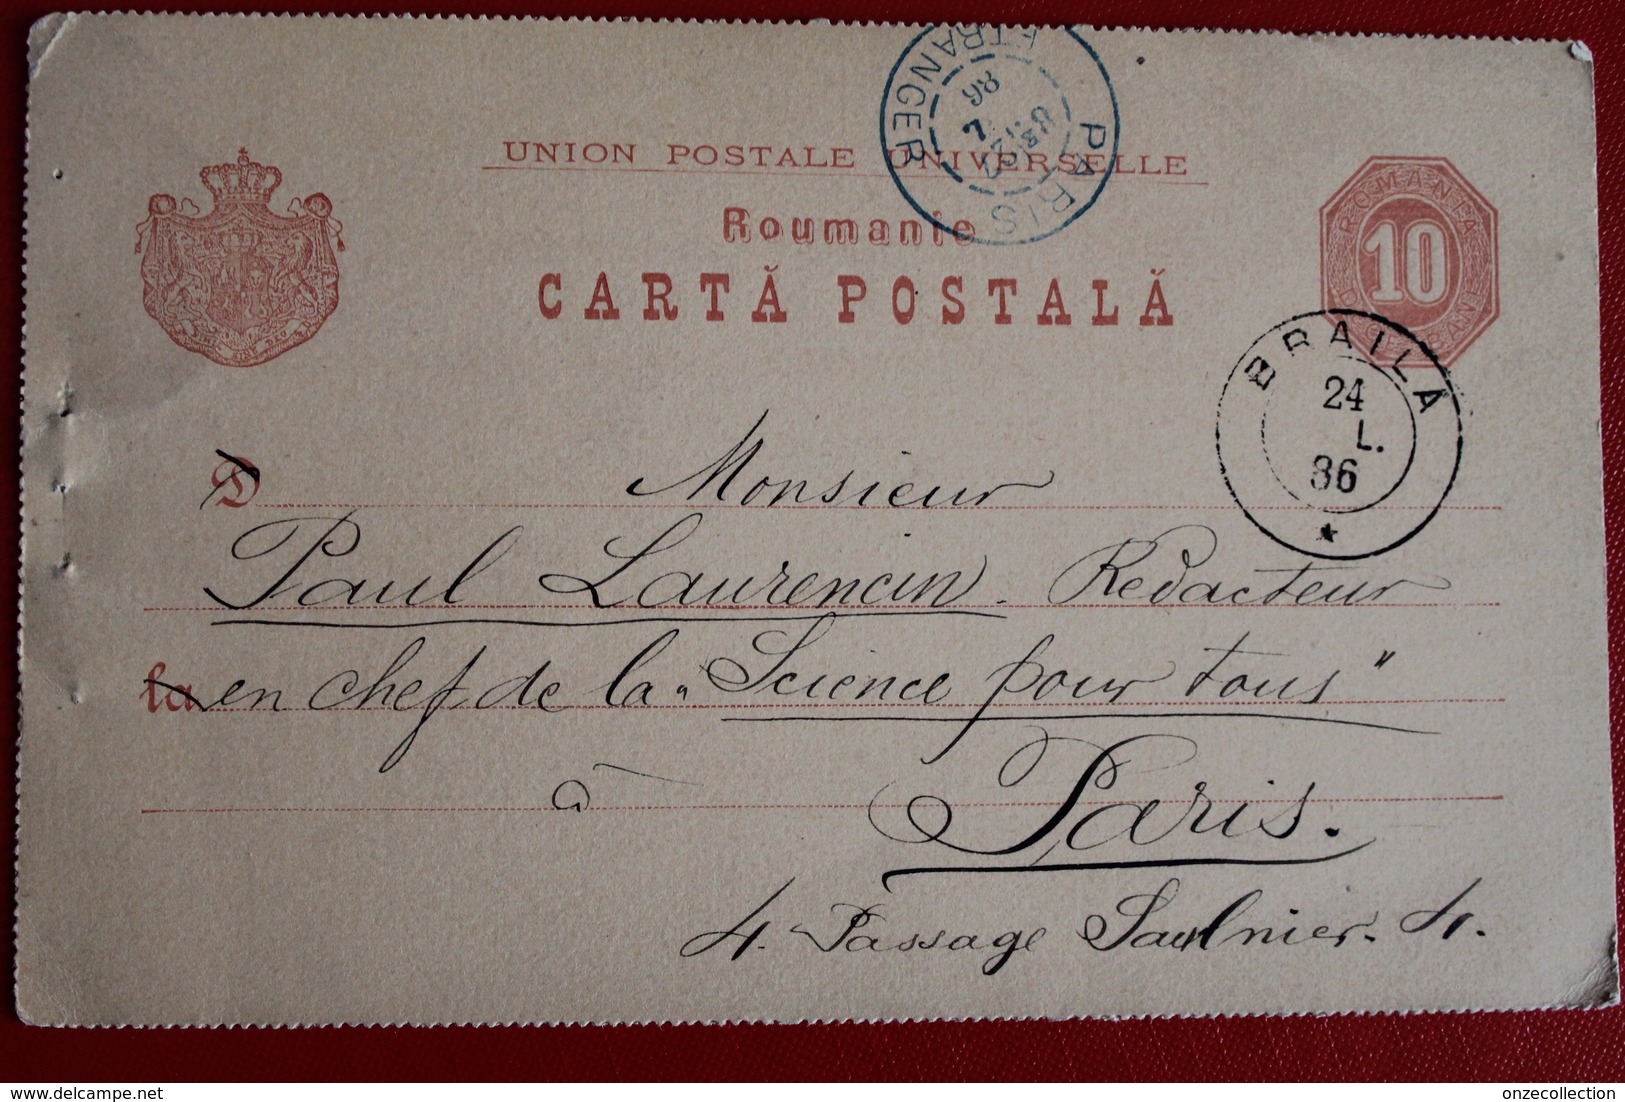 PARIS ETRANGER
86
UNION POSTALE UNIVERSELLE
Roumanie
CARTĂ POSTALĂ
ROMANIA
10
BRAILA
24
L.
86
D
Monsieur
Paul Laurencin. Redacteur
la en chef de la "Science pour tous"
à Paris.
4. Passage Saulnier. 4.
delcampe.net
onzecollection